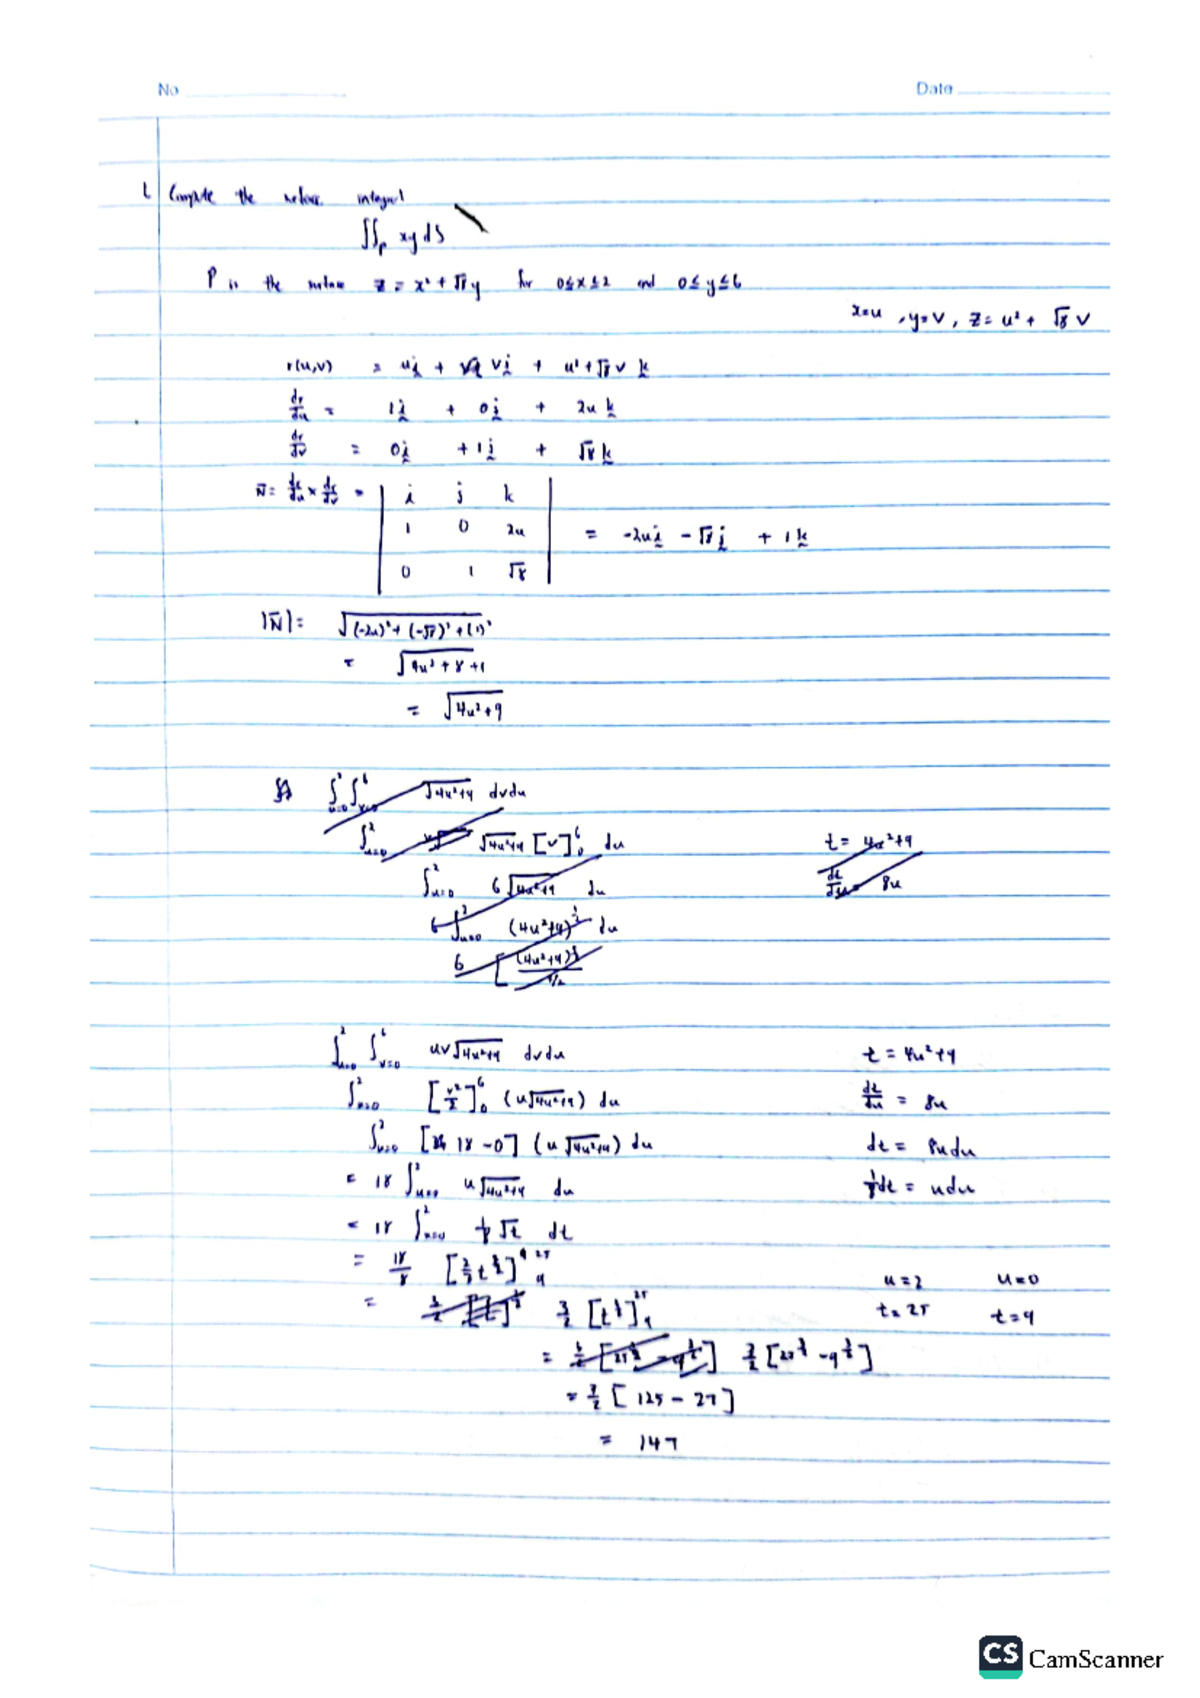 No
Date
1 Compute the surface integral
∬_P xy dS
P is the surface z = x² + √8 y for 0≤x≤2 and 0≤y≤6
x=u , y=v , z= u² + √8 v
r(u,v) = u i + v j + u² + √8 v k
dr/du = 1 i + 0 j + 2u k
dr/dv = 0 i + 1 j + √8 k
N = dr/du × dr/dv = | i j k
1 0 2u | = -2u i - √8 j + 1 k
0 1 √8
|N| = √((-2u)² + (-√8)² + (1)²
= √(4u² + 8 + 1
= √(4u²+9
∫²_{u=0} ∫⁶_{v=0} √(4u²+9) dvdu
∫²_{u=0} √(4u²+9) [v]⁶₀ du t = 4u²+9
∫²_{u=0} 6√(4u²+9) du dt/du = 8u
6 ∫²_{u=0} (4u²+9)^{1/2} du
6 [ (4u²+9)^{3/2} / 3/2
∫²_{u=0} ∫⁶_{v=0} uv√(4u²+9) dvdu t = 4u²+9
∫²_{u=0} [v²/2]⁶₀ (u√(4u²+9)) du dt/du = 8u
∫²_{u=0} [18 - 0] (u√(4u²+9)) du dt = 8u du
= 18 ∫²_{u=0} u√(4u²+9) du 1/8 dt = u du
= 18 ∫²_{u=0} 1/8 √t dt
= 18/8 [2/3 t^{3/2}]²⁵₉ u=2 u=0
= 3/2 [t^{3/2}]²⁵₉ t=25 t=9
= 3/2 [25^{3/2} - 9^{3/2}]
= 3/2 [125 - 27]
= 147
CS CamScanner